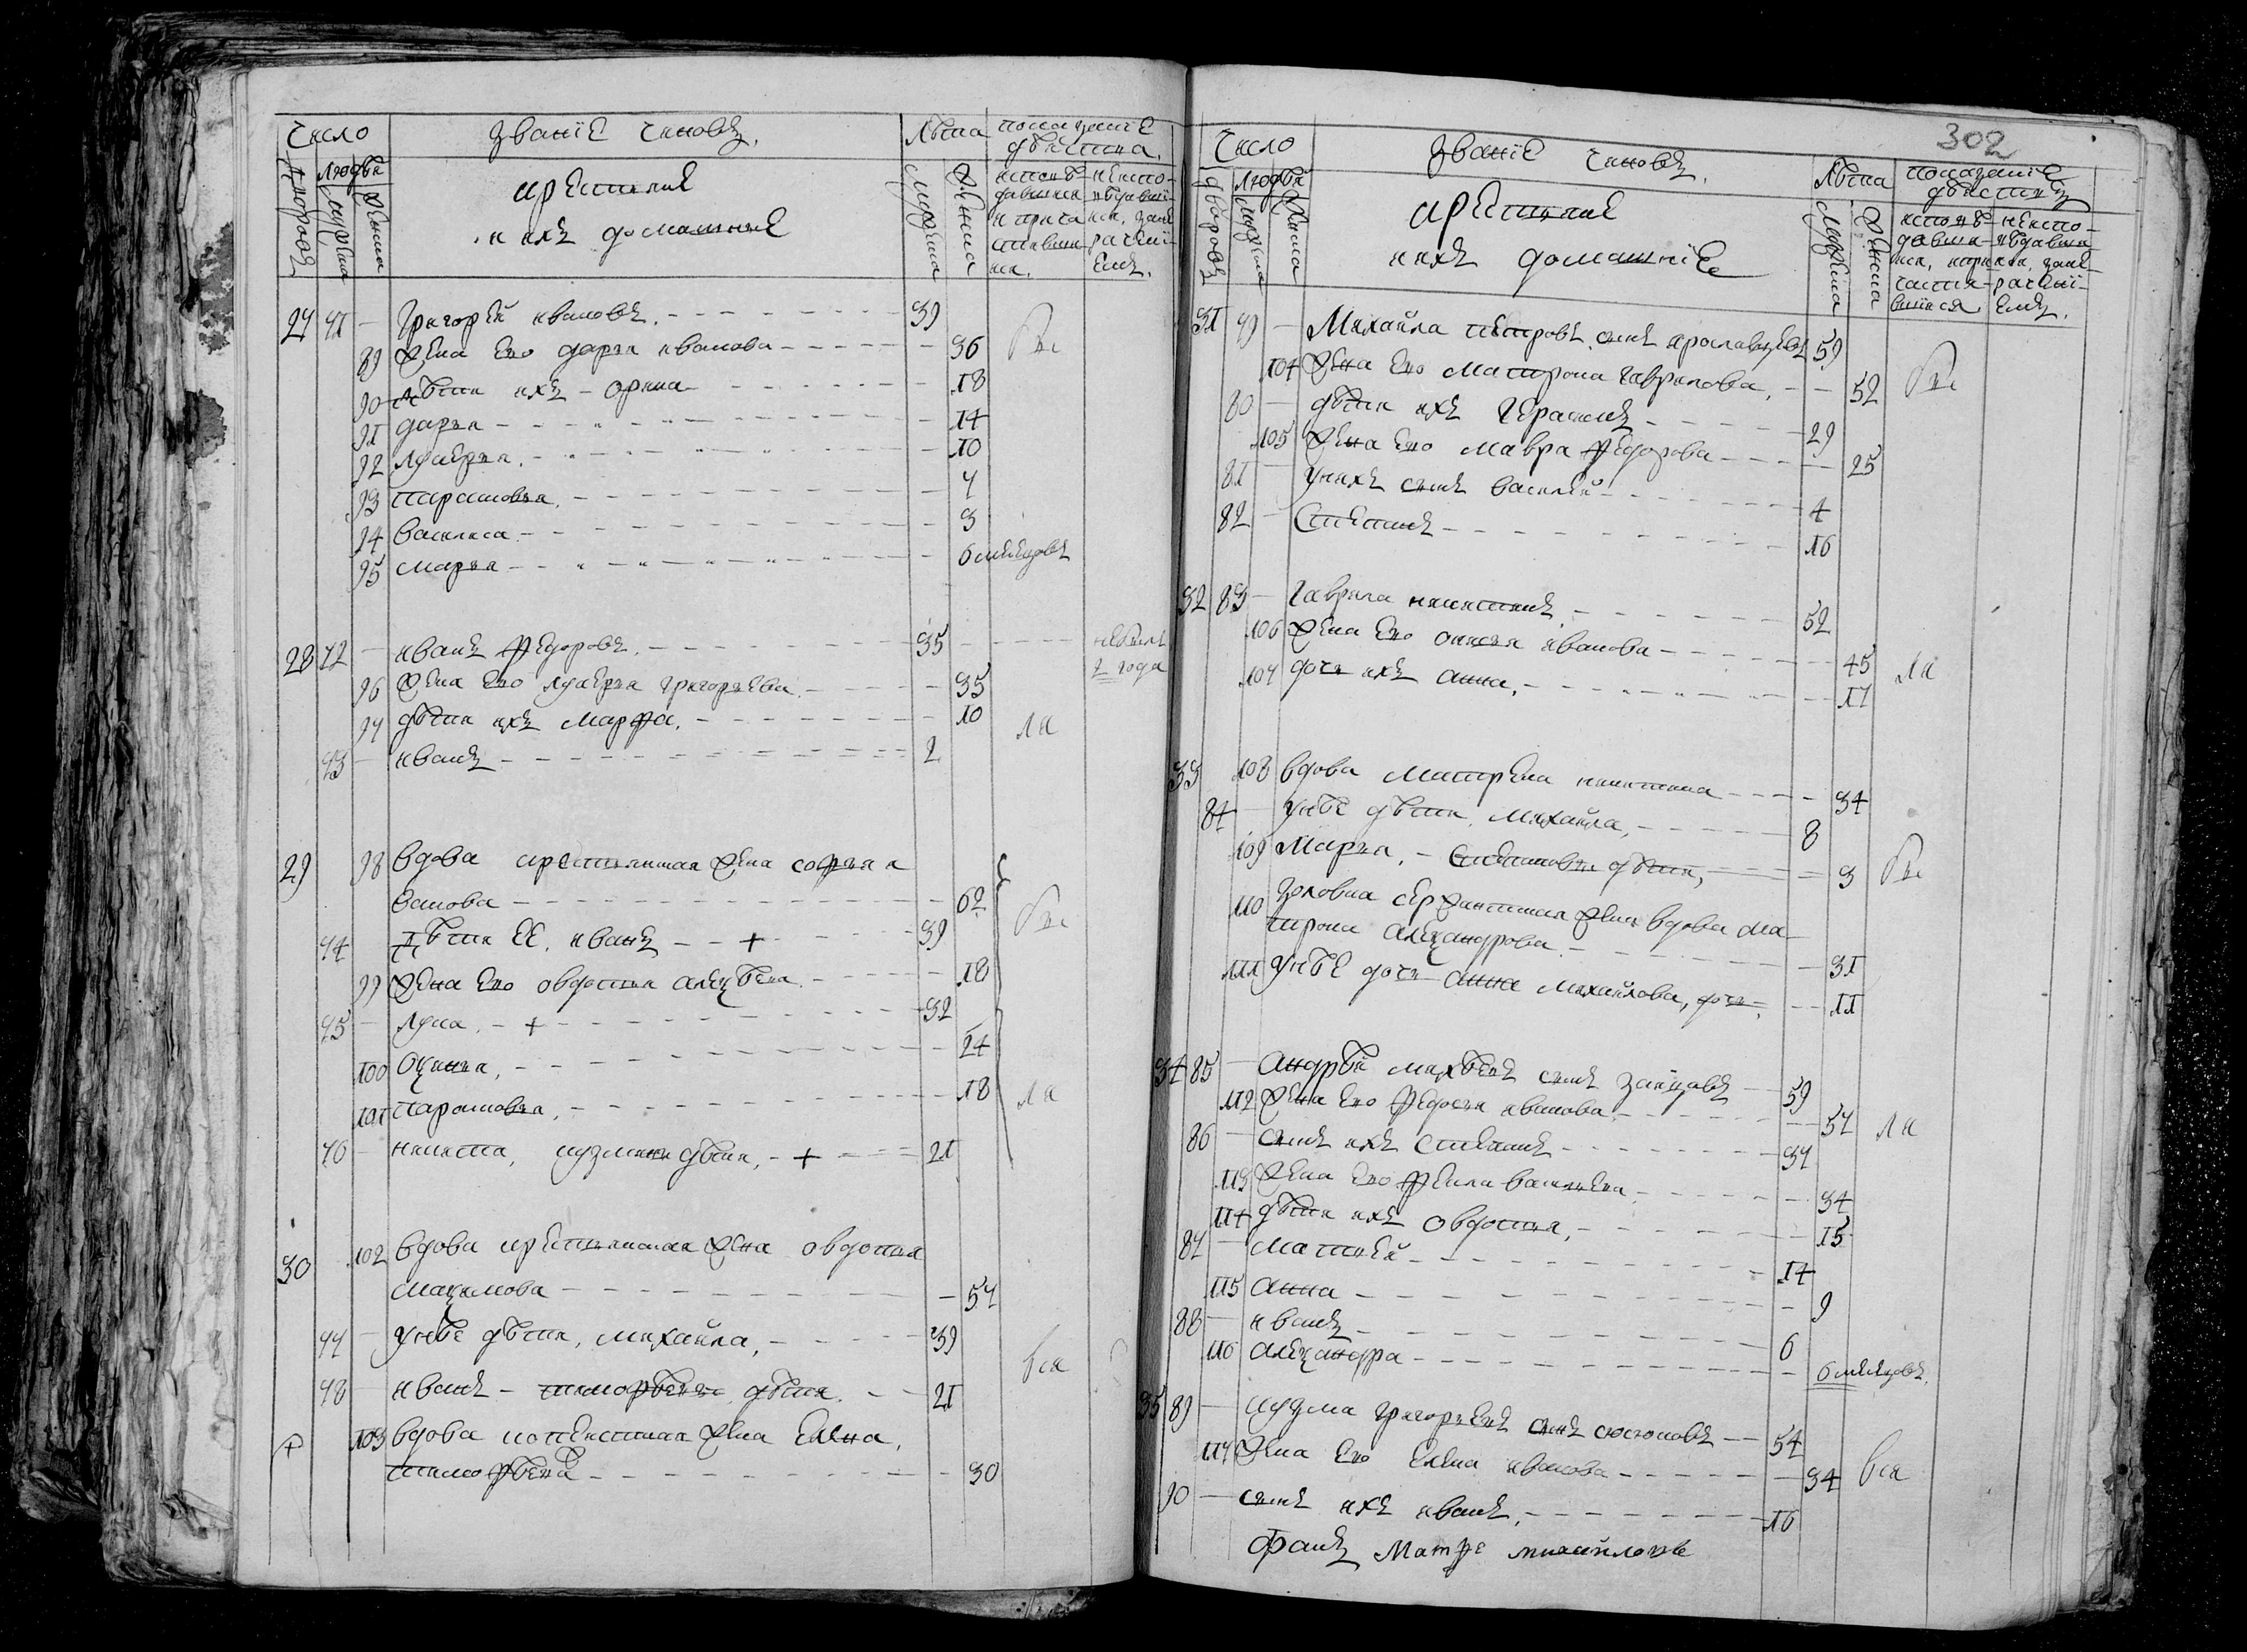 Число Званïе чиновъ. Лѣта показание дѣиства.
дворовъ людей мужска женска крестьяне и ихъ домашние мужеска женска исповѣдавшися и причастившися. неисповѣдавшися, за нерачениемъ.
27 71 — Григореи ивановъ. 39
89 жена ево дарья иванова 36
90 дѣти ихъ — орина 18
91 дарья 14
92 лукерья. 10
93 парасковья. 7
94 василиса. 3
95 марья 6 месяцовъ
28 72 — иванъ федоровъ. 35 небылъ 2 года
96 жена ево лукерья григорьева. 35
97 дѣти ихъ марфа. 10
73 — иванъ 2
29 98 вдова крестьянская жена софья и
ванова 62
74 Дѣти ее. иванъ — + 39
99 жена ево овдотья алексѣева. 18
75 — лука. — + 32
100 оксинья, 24
101 парасковья, 18
76 — никита, кузмины дѣти, — + 21
30 102 вдова крестьянская жена овдотья
максимова 57
77 — у нѣе дѣти, михаила, 39
78 иванъ — тимофѣевы дѣти. 21
103 вдова копеистская жена елена,
тимофѣева 30
302
Число Званïе чиновъ. Лѣта показание дѣиствъ
дворовъ людей мужска женска крестьяне и ихъ домашнïе мужеска женска
31 79 — Михаила петровъ сынъ ярославцевъ 59
104 жена ево матрона гаврилова. 52
80 — дѣти ихъ герасимъ 29
105 жена ево мавра федорова 25
81 — у нихъ сынъ василеи 4
82 — Степанъ 16
32 83 — гаврила никитинъ. 52
106 жена ево онисья иванова 45
107 дочь ихъ анна. 17
33 108 вдова матрена никитина 34
84 — у нѣе дѣти, михаила, 8
109 марья, — степановы дѣти, 3
110 золовка сержантская жена вдова ма
трона александрова. 31
111 у нѣе дочь анна михаилова, дочь. 11
34 85 — андрѣи михѣевъ сынъ заицовъ 59
112 жена ево федосья иванова. 57
86 — сынъ ихъ степанъ 37
113 жена ево фекла васильева 34
114 дѣти ихъ овдотья, 15
87 — матвеи 14
115 анна 9
88 — иванъ 6
116 александра 6 месяцовъ.
35 89 — кузма григорьевъ сынъ 54
117 жена ево елена иванова 34
90 — сынъ ихъ иванъ, 16